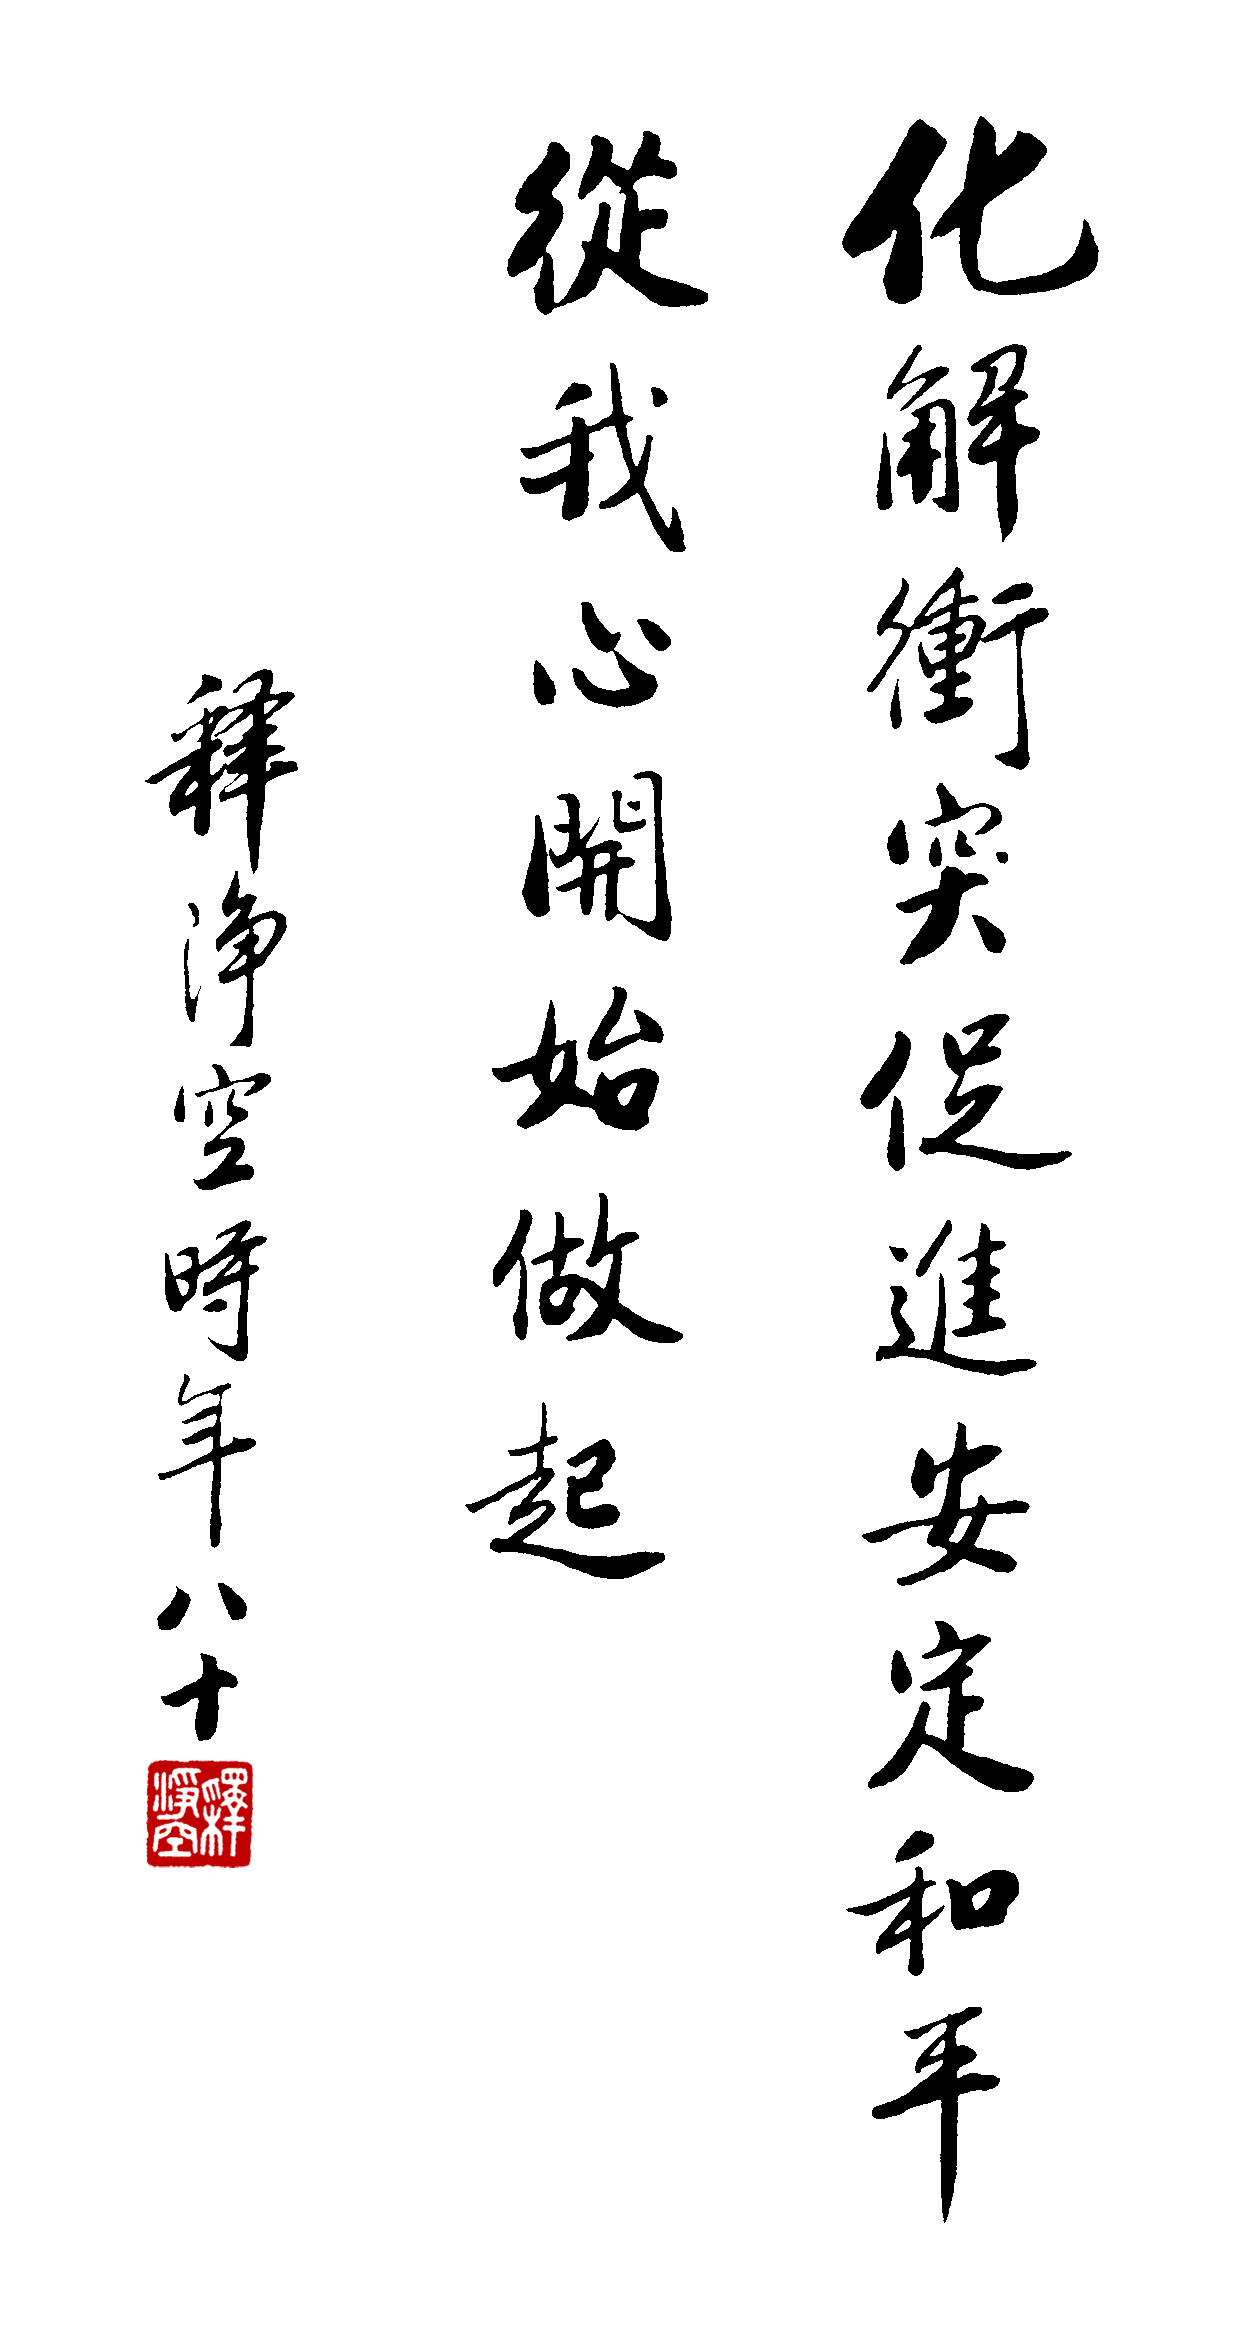 化解衝突促進安定和平
從我心開始做起
釋淨空時年八十
釋淨空